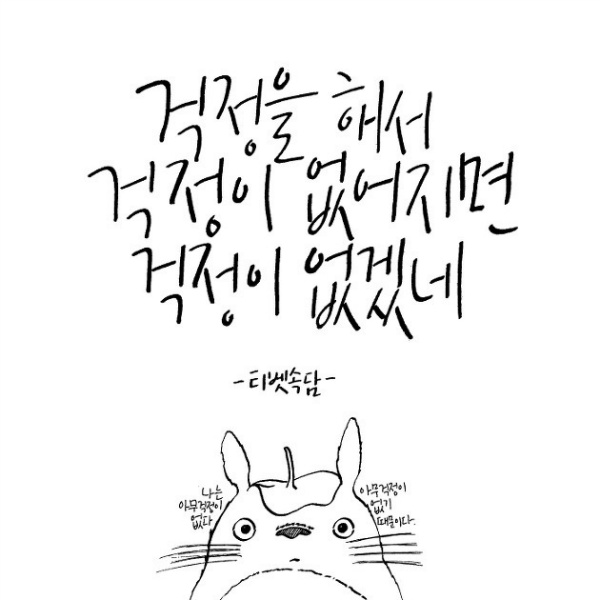 걱정을 해서
걱정이 없어지면
걱정이 없겠네
-티벳속담-
나는
아무걱정이
없다
아무걱정이
없기
때문이다.